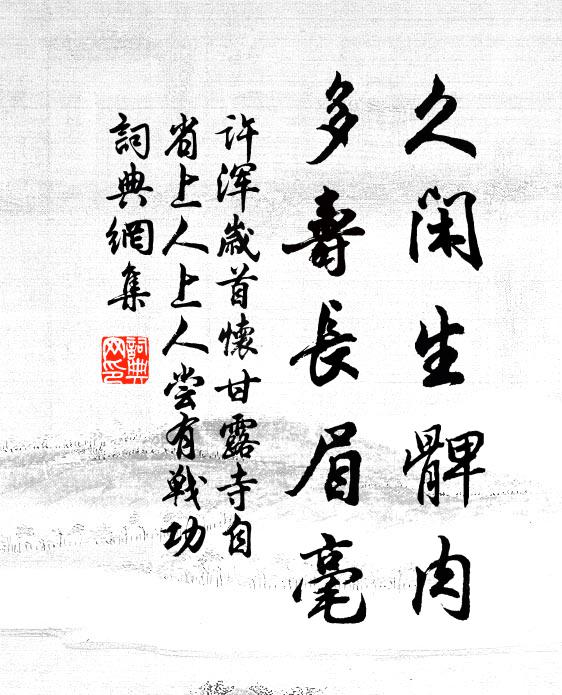 久閑生髀肉
多壽長眉毫
许渾歲首懷甘露寺自
省上人上人嘗有戰功
詞典網集
詞典
网印